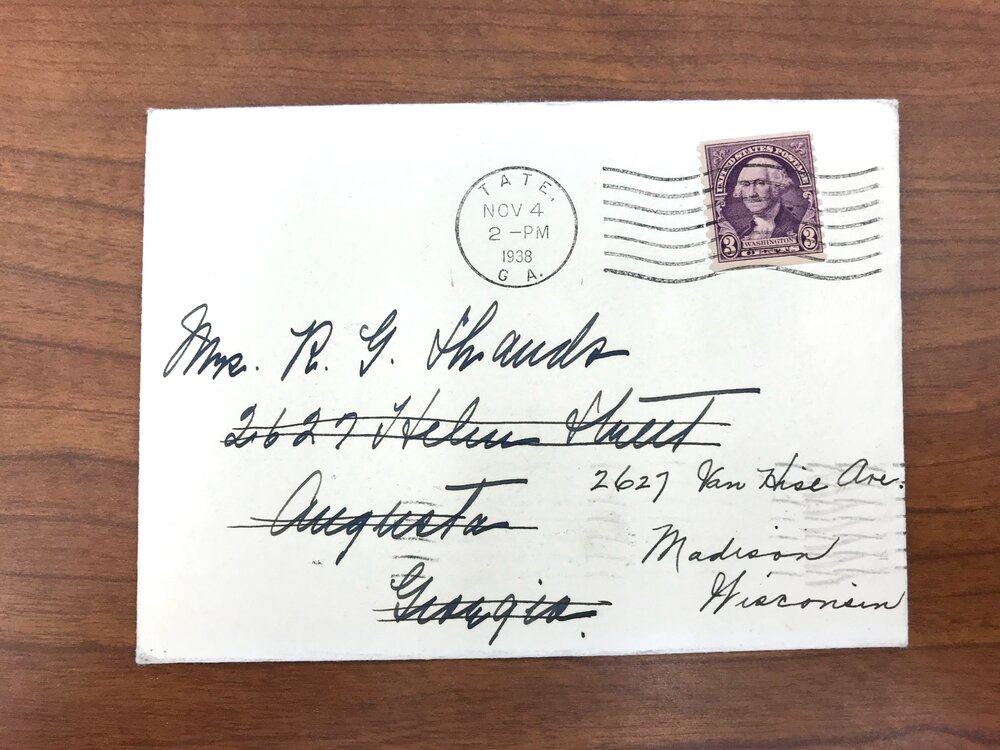 TATE,
NOV 4
2 -PM
1938
GA.
UNITED STATES POSTAGE
3 WASHINGTON 3
CENTS
Mrs. R. G. Shands
2627 Helen Street
Augusta
Georgia.
2627 Van Hise Ave.
Madison
Wisconsin